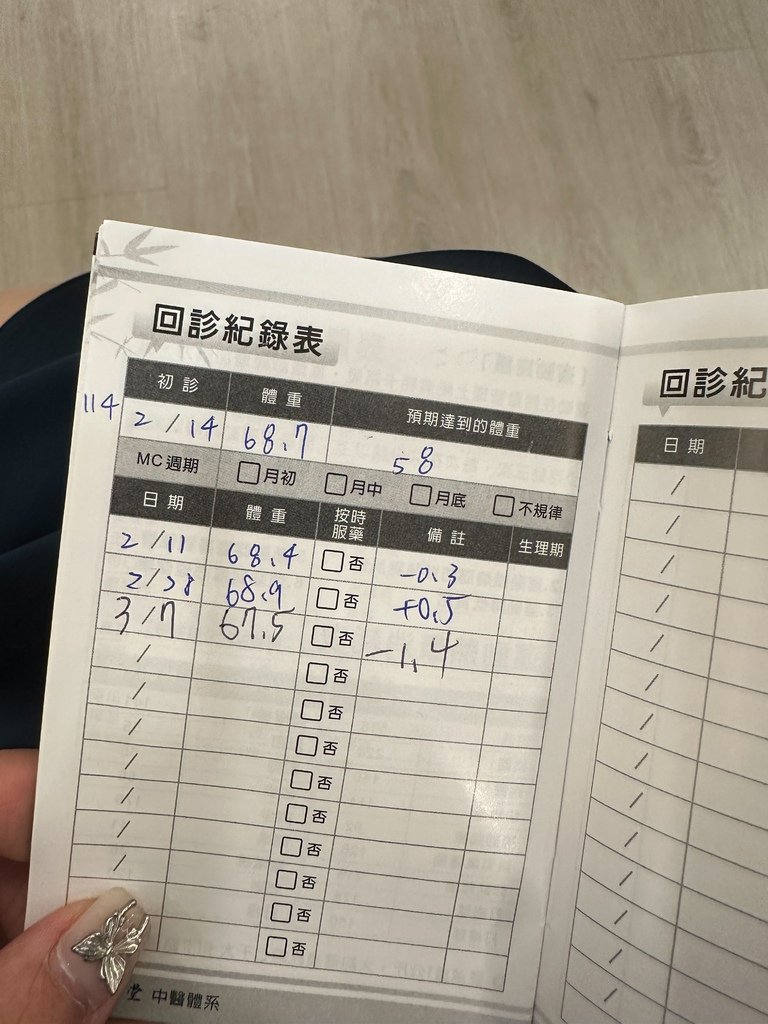 回診紀錄表
初診 體重 預期達到的體重
114 2/14 68.7 58
MC週期 □月初 □月中 □月底 □不規律
日期 體重 按時服藥 備註 生理期
2/11 68.4 □否 -0.3
2/28 68.9 □否 +0.5
3/7 67.5 □否 -1.4
/ □否
/ □否
/ □否
/ □否
/ □否
/ □否
/ □否
□否
□否
堂 中醫體系
回診紀
日期
/
/
/
/
/
/
/
/
/
/
/
/
/
/